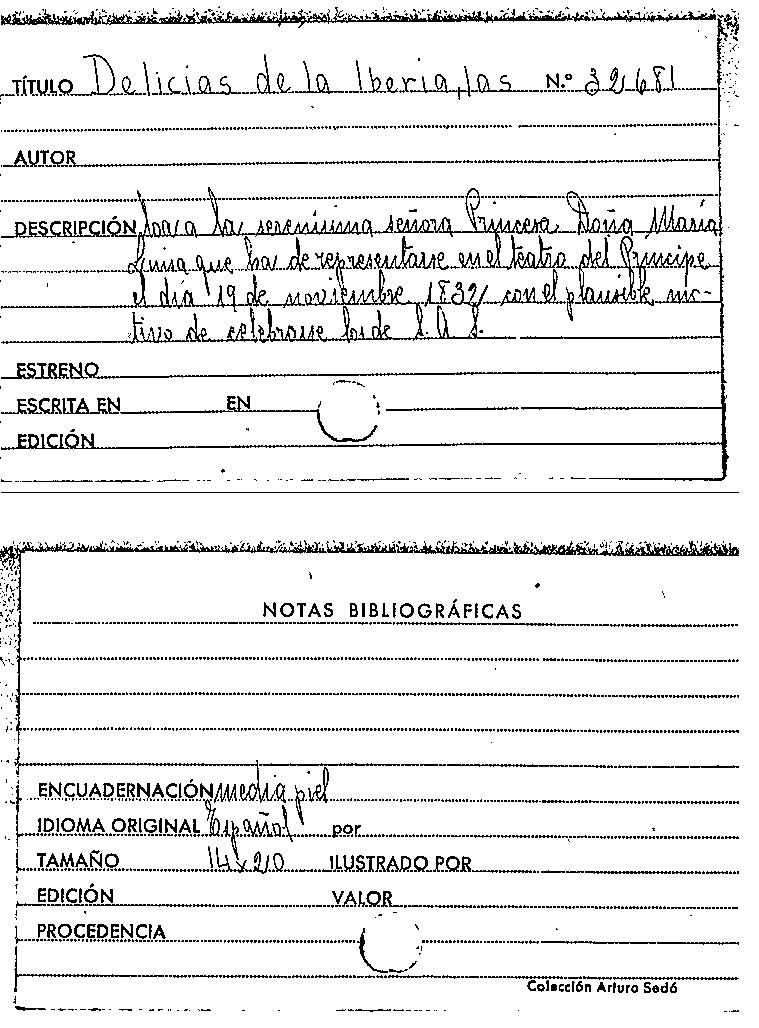 TÍTULO Delicias de la Iberia, las N.º 32681
AUTOR
DESCRIPCIÓN, loa a la serenísima señora Princesa Doña María
Luisa que ha de representarse en el teatro del Principe
el día 19 de noviembre 1832 con el plausible mo-
tivo de celebrarse los de S. A. S.
ESTRENO
ESCRITA EN EN
EDICIÓN
NOTAS BIBLIOGRÁFICAS
ENCUADERNACIÓN media piel
IDIOMA ORIGINAL Español por
TAMAÑO 14x20 ILUSTRADO POR
EDICIÓN VALOR
PROCEDENCIA
Colección Arturo Sedó